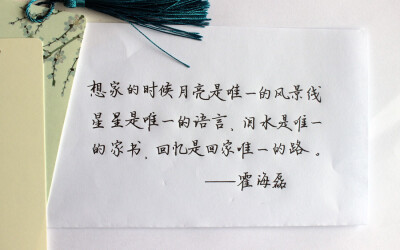 想家的时候月亮是唯一的风景线
星星是唯一的语言、泪水是唯一
的家书，回忆是回家唯一的路。
——霍海磊